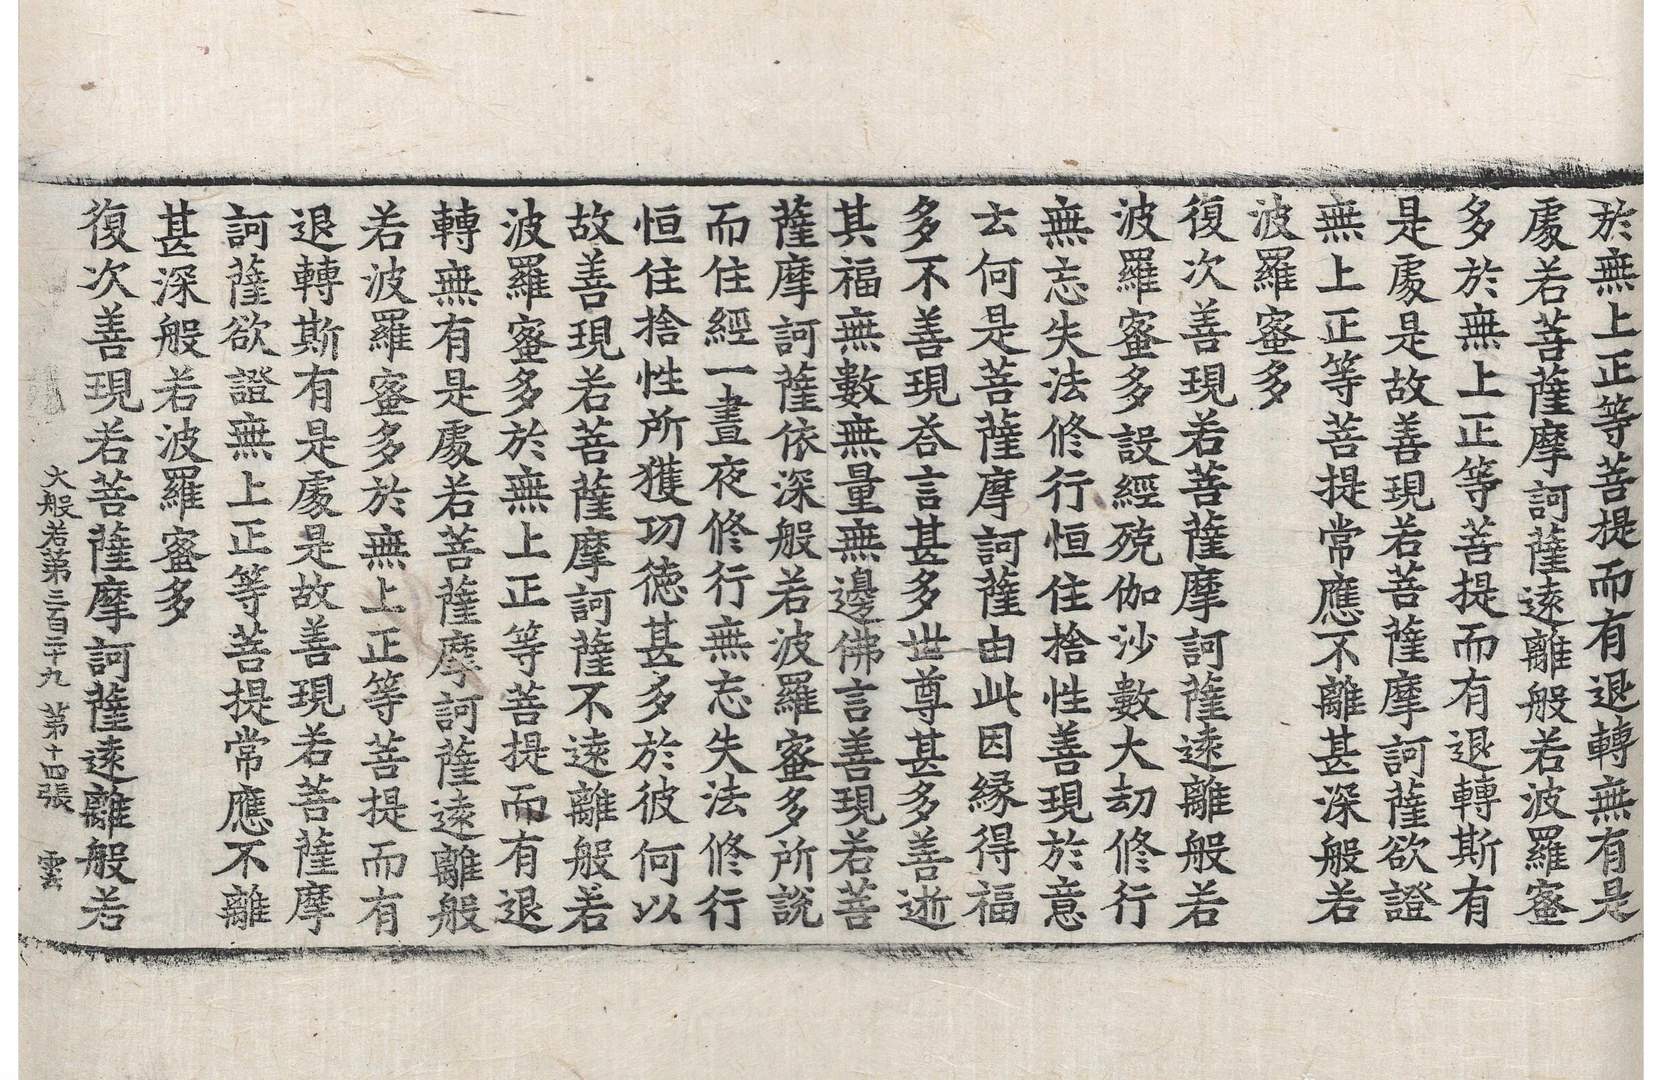 於無上正等菩提而有退轉無有是
處若菩薩摩訶薩遠離般若波羅蜜
多於無上正等菩提而有退轉斯有
是處是故善現若菩薩摩訶薩欲證
無上正等菩提常應不離甚深般若
波羅蜜多
復次善現若菩薩摩訶薩遠離般若
波羅蜜多設經殑伽沙數大劫修行
無忘失法修行恒住捨性善現於意
云何是菩薩摩訶薩由此因緣得福
多不善現荅言甚多世尊甚多善逝
其福無數無量無邊佛言善現若菩
薩摩訶薩依深般若波羅蜜多所說
而住經一晝夜修行無忘失法修行
恒住捨性所獲功德甚多於彼何以
故善現若菩薩摩訶薩不遠離般若
波羅蜜多於無上正等菩提而有退
轉無有是處若菩薩摩訶薩遠離般
若波羅蜜多於無上正等菩提而有
退轉斯有是處是故善現若菩薩摩
訶薩欲證無上正等菩提常應不離
甚深般若波羅蜜多
復次善現若菩薩摩訶薩遠離般若
大般若第三百二十九 第十四張 雲